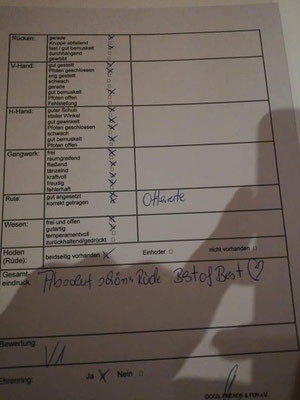 Rücken: gerade
Kruppe abfallend
fest / gut bemuskelt
durchhängend
gewölbt
V-Hand: gut gestellt
Pfoten geschlossen
eng gestellt
schwach
gerade
gut bemuskelt
Pfoten offen
Fehlstellung
H-Hand: guter Schub
steiler Winkel
gut gewinkelt
Pfoten geschlossen
schwach
gut bemuskelt
Pfoten offen
Gangwerk: frei
raumgreifend
fließend
tänzelnd
kraftvoll
freudig
fehlerhaft
Rute: gut angesetzt
korrekt getragen
Wesen: frei und offen
gutartig
temperamentvoll
zurückhaltend/gedrückt
Hoden (Rüde): beidseitig vorhanden Einhoder nicht vorhanden
Gesamteindruck: Absolut schöner Rüde Best of Best ♡
Bewertung: V1
Ehrenring: Ja X Nein